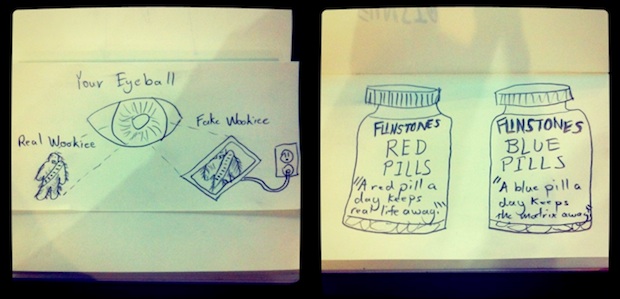 Your Eyeball
Real Wookiee
Fake Wookiee
FLINSTONES
RED
PILLS
"A red pill a
day keeps
real life away."
FLINSTONES
BLUE
PILLS
"A blue pill a
day keeps
the matrix away"